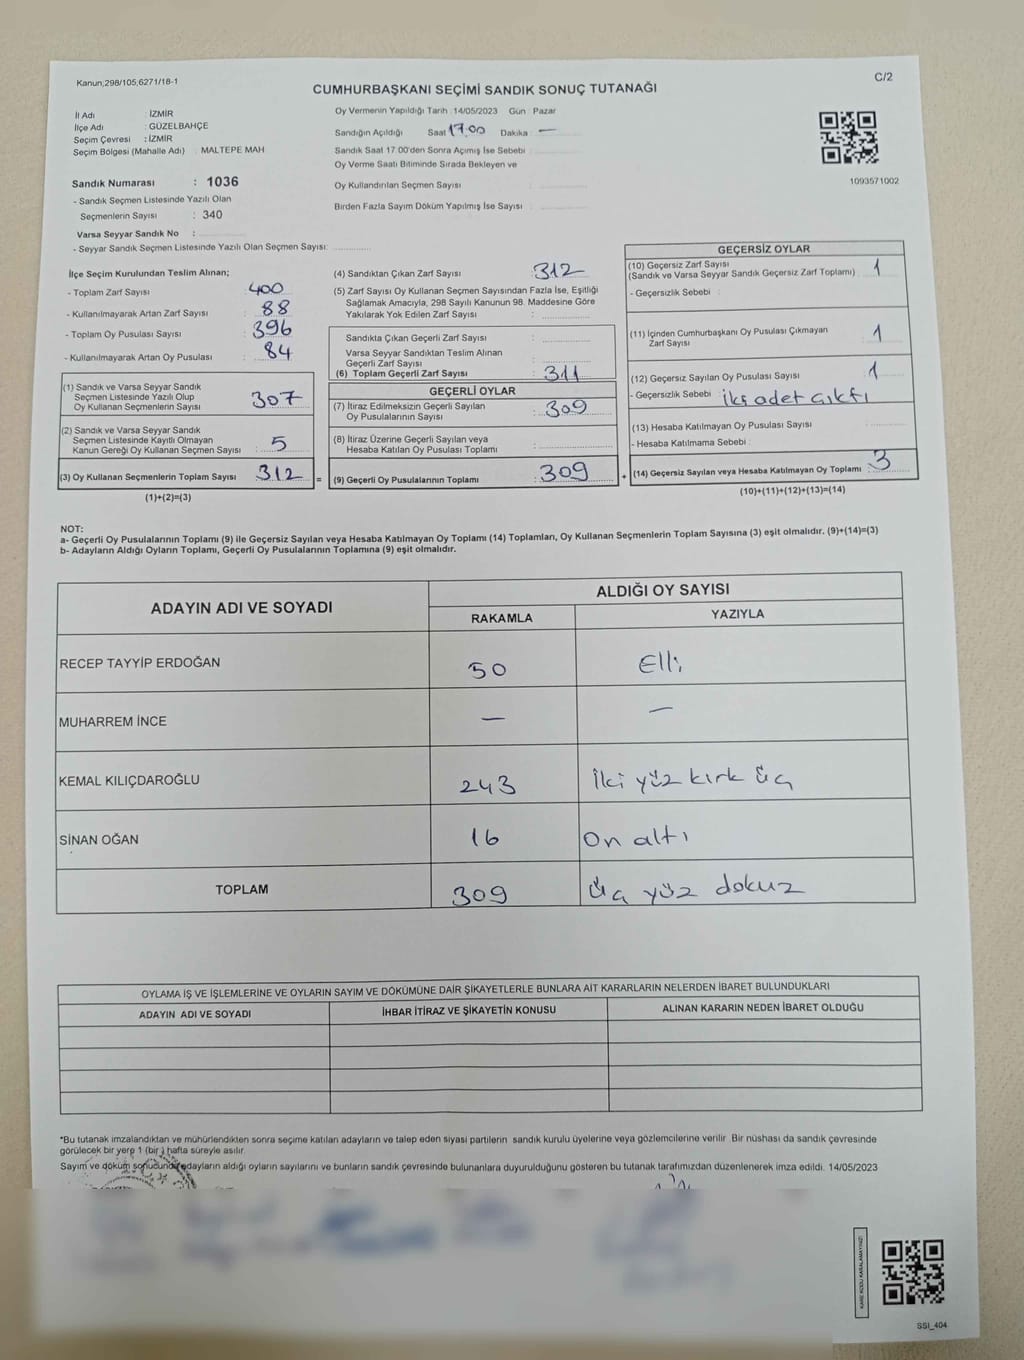 Kanun;298/105,6271/18-1
C/2
CUMHURBAŞKANI SEÇİMİ SANDIK SONUÇ TUTANAĞI
İl Adı : İZMİR
İlçe Adı : GÜZELBAHÇE
Seçim Çevresi : İZMİR
Seçim Bölgesi (Mahalle Adı) : MALTEPE MAH
Sandık Numarası : 1036
- Sandık Seçmen Listesinde Yazılı Olan
Seçmenlerin Sayısı : 340
Varsa Seyyar Sandık No :
- Seyyar Sandık Seçmen Listesinde Yazılı Olan Seçmen Sayısı:
Oy Vermenin Yapıldığı Tarih : 14/05/2023 Gün : Pazar
Sandığın Açıldığı Saat 17.00 Dakika : —
Sandık Saat 17:00'den Sonra Açımış İse Sebebi
Oy Verme Saati Bitiminde Sırada Bekleyen ve
Oy Kullandırılan Seçmen Sayısı :
Birden Fazla Sayım Döküm Yapılmış İse Sayısı :
1093571002
İlçe Seçim Kurulundan Teslim Alınan;
- Toplam Zarf Sayısı : 400
- Kullanılmayarak Artan Zarf Sayısı : 88
- Toplam Oy Pusulası Sayısı : 396
- Kullanılmayarak Artan Oy Pusulası : 84
(1) Sandık ve Varsa Seyyar Sandık
Seçmen Listesinde Yazılı Olup
Oy Kullanan Seçmenlerin Sayısı : 307
(2) Sandık ve Varsa Seyyar Sandık
Seçmen Listesinde Kayıtlı Olmayan
Kanun Gereği Oy Kullanan Seçmen Sayısı : 5
(3) Oy Kullanan Seçmenlerin Toplam Sayısı : 312 =
(1)+(2)=(3)
(4) Sandıktan Çıkan Zarf Sayısı : 312
(5) Zarf Sayısı Oy Kullanan Seçmen Sayısından Fazla İse, Eşitliği
Sağlamak Amacıyla, 298 Sayılı Kanunun 98. Maddesine Göre
Yakılarak Yok Edilen Zarf Sayısı :
Sandıkta Çıkan Geçerli Zarf Sayısı :
Varsa Seyyar Sandıktan Teslim Alınan
Geçerli Zarf Sayısı :
(6) Toplam Geçerli Zarf Sayısı : 311
GEÇERLİ OYLAR
(7) İtiraz Edilmeksizin Geçerli Sayılan
Oy Pusulalarının Sayısı : 309
(8) İtiraz Üzerine Geçerli Sayılan veya
Hesaba Katılan Oy Pusulası Toplamı :
(9) Geçerli Oy Pusulalarının Toplamı : 309 +
GEÇERSİZ OYLAR
(10) Geçersiz Zarf Sayısı
(Sandık ve Varsa Seyyar Sandık Geçersiz Zarf Toplamı) : 1
- Geçersizlik Sebebi :
(11) İçinden Cumhurbaşkanı Oy Pusulası Çıkmayan
Zarf Sayısı : 1
(12) Geçersiz Sayılan Oy Pusulası Sayısı : 1
- Geçersizlik Sebebi : iki adet çıktı
(13) Hesaba Katılmayan Oy Pusulası Sayısı :
- Hesaba Katılmama Sebebi :
(14) Geçersiz Sayılan veya Hesaba Katılmayan Oy Toplamı : 3
(10)+(11)+(12)+(13)=(14)
NOT:
a- Geçerli Oy Pusulalarının Toplamı (9) ile Geçersiz Sayılan veya Hesaba Katılmayan Oy Toplamı (14) Toplamları, Oy Kullanan Seçmenlerin Toplam Sayısına (3) eşit olmalıdır. (9)+(14)=(3)
b- Adayların Aldığı Oyların Toplamı, Geçerli Oy Pusulalarının Toplamına (9) eşit olmalıdır.
ADAYIN ADI VE SOYADI
ALDIĞI OY SAYISI
RAKAMLA YAZIYLA
RECEP TAYYİP ERDOĞAN 50 Elli
MUHARREM İNCE — —
KEMAL KILIÇDAROĞLU 243 İki yüz kırk üç
SİNAN OĞAN 16 On altı
TOPLAM 309 Üç yüz dokuz
OYLAMA İŞ VE İŞLEMLERİNE VE OYLARIN SAYIM VE DÖKÜMÜNE DAİR ŞİKAYETLERLE BUNLARA AİT KARARLARIN NELERDEN İBARET BULUNDUKLARI
ADAYIN ADI VE SOYADI İHBAR İTİRAZ VE ŞİKAYETİN KONUSU ALINAN KARARIN NEDEN İBARET OLDUĞU
*Bu tutanak imzalandıktan ve mühürlendikten sonra seçime katılan adayların ve talep eden siyasi partilerin sandık kurulu üyelerine veya gözlemcilerine verilir. Bir nüshası da sandık çevresinde
görülecek bir yere 1 (bir) hafta süreyle asılır.
Sayım ve döküm sonucunda adayların aldığı oyların sayılarını ve bunların sandık çevresinde bulunanlara duyurulduğunu gösteren bu tutanak tarafımızdan düzenlenerek imza edildi. 14/05/2023
KARE KODU KARALAMAYINIZ!
SSI_404